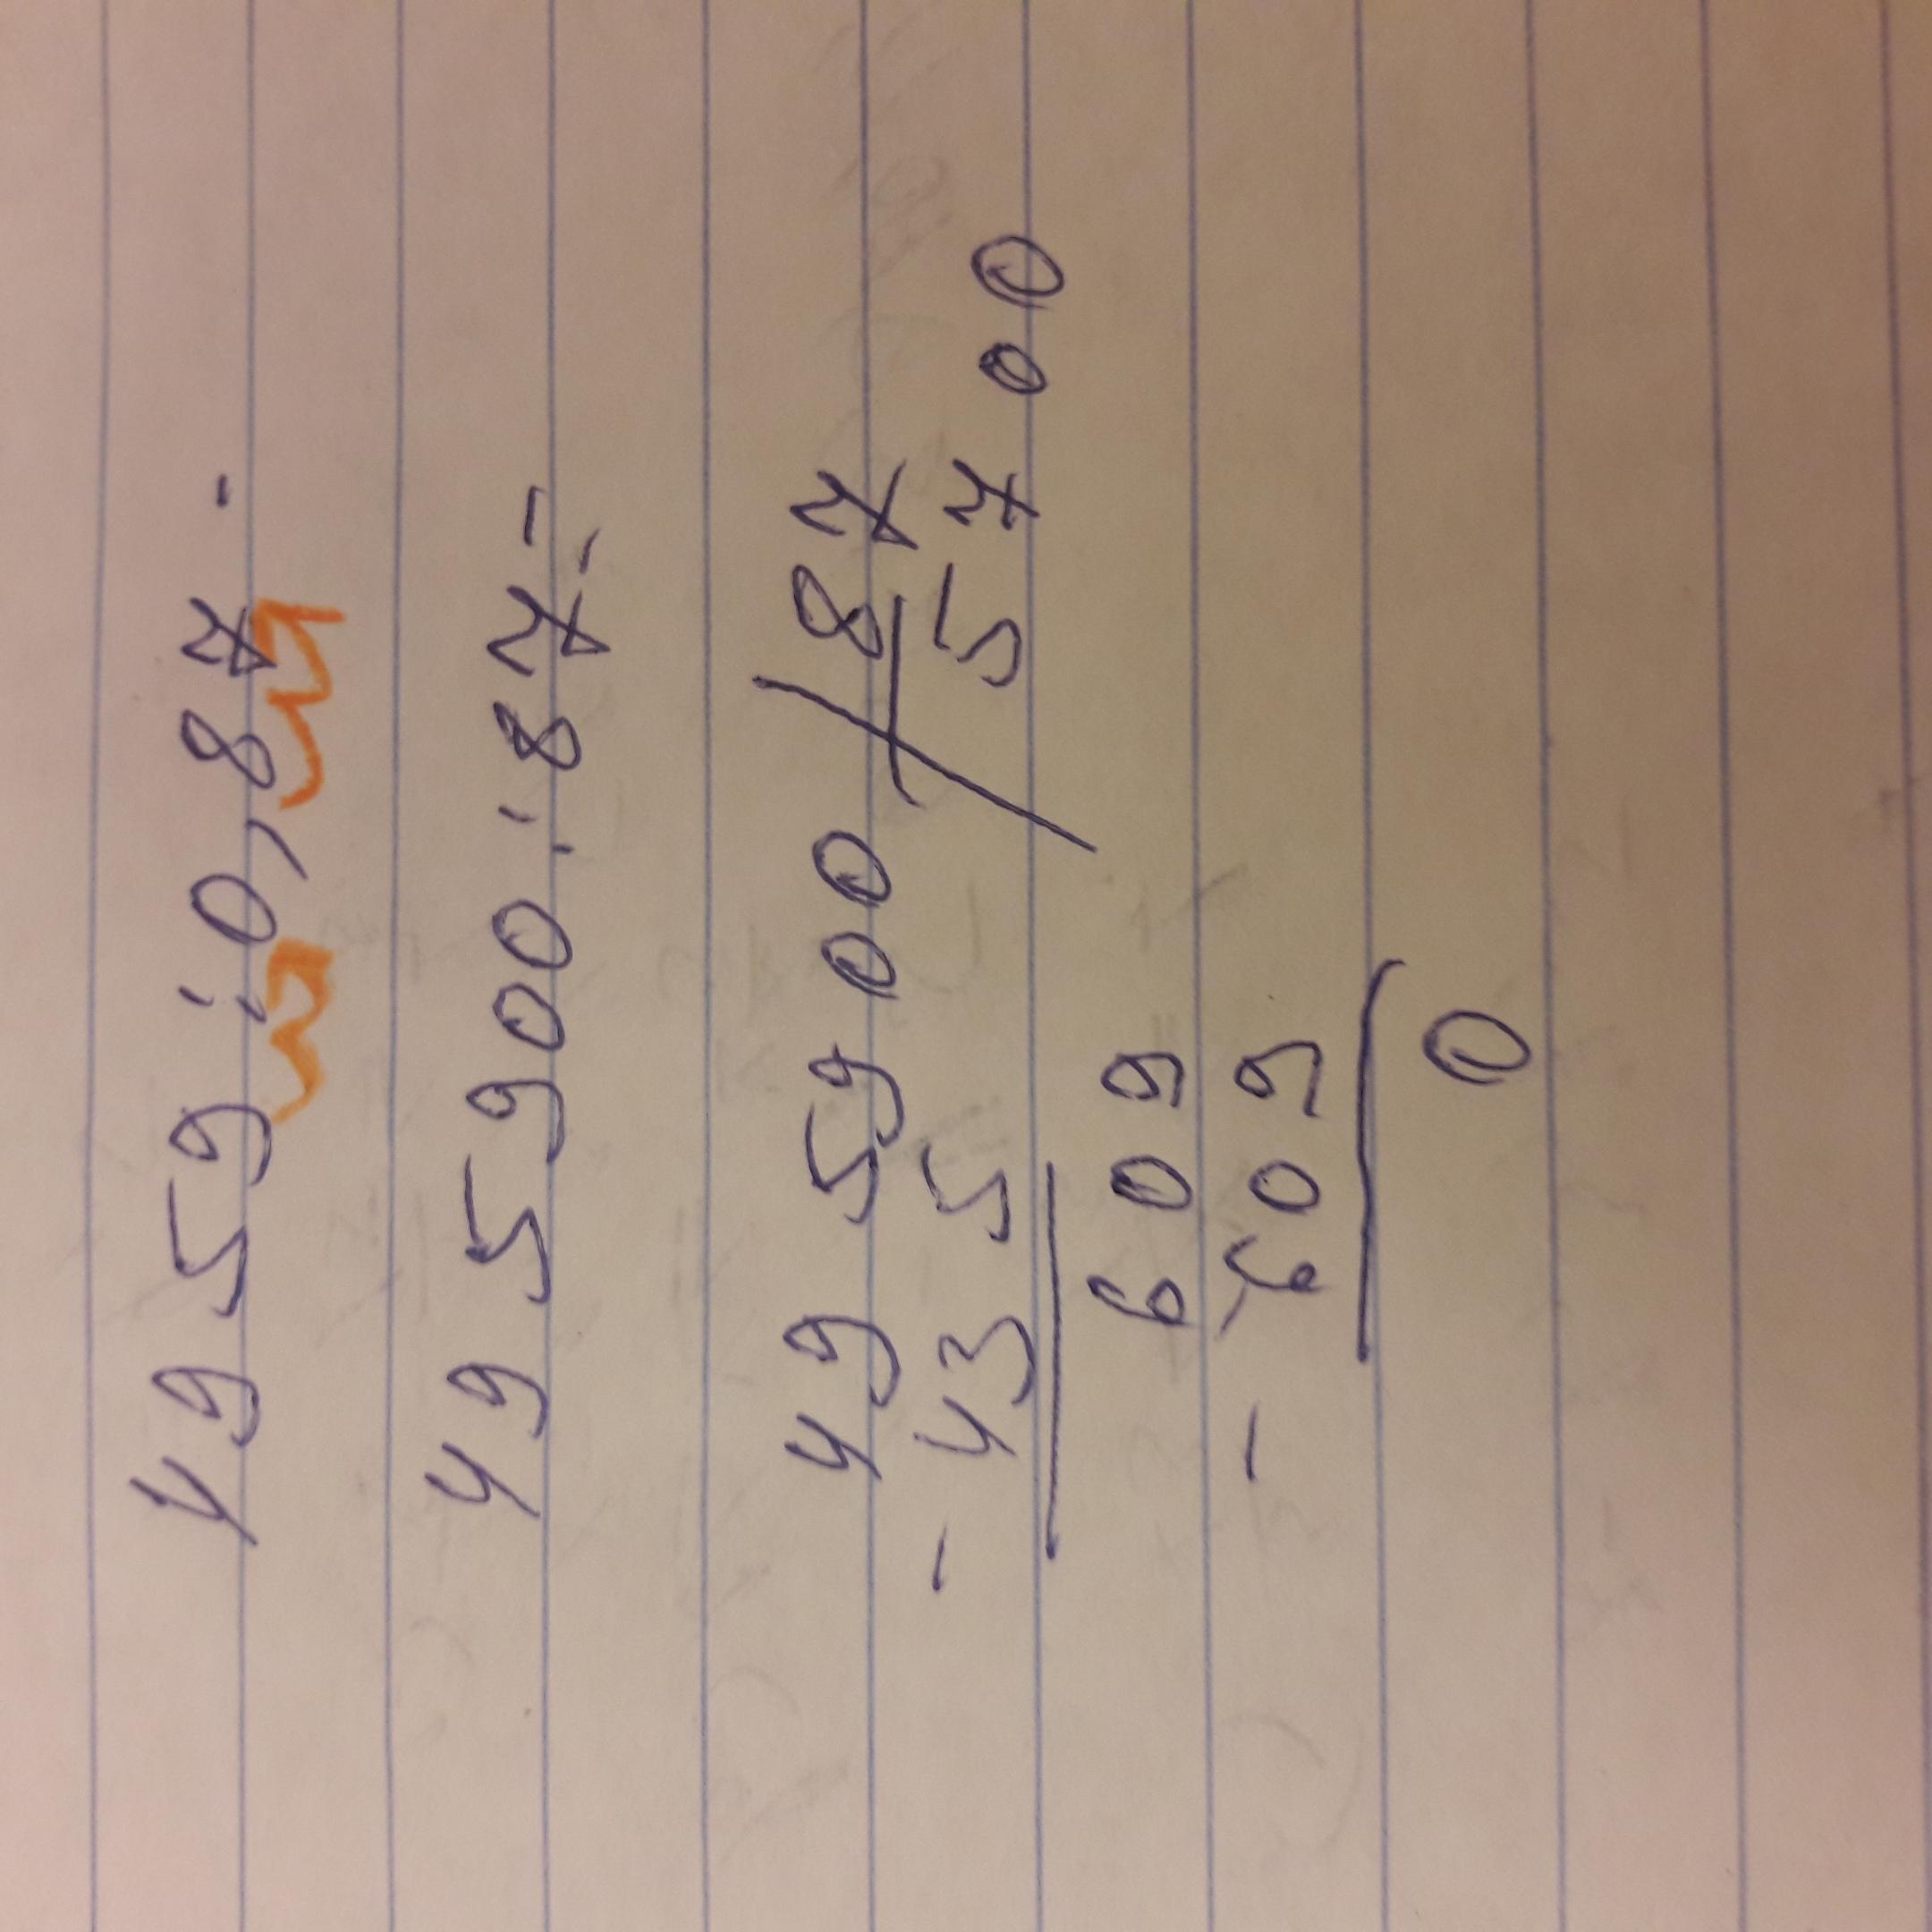 4959:0,87-
495900:87=
495900/87
-435 5700
609
-609
0